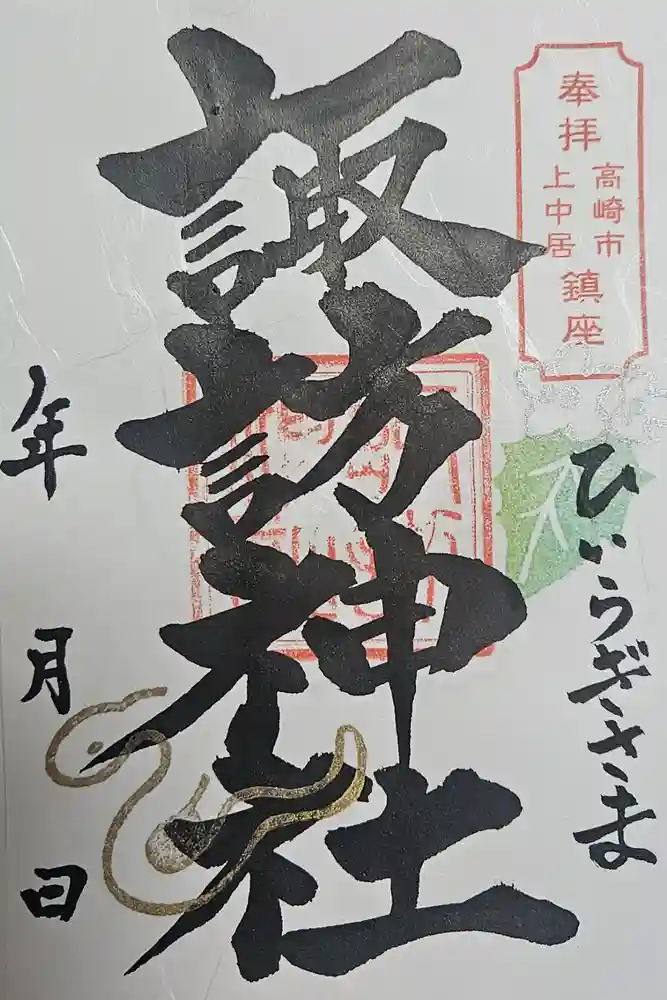 奉拝
高崎市
上中居
鎮座
ひいらぎさま
諏訪神社
年月日